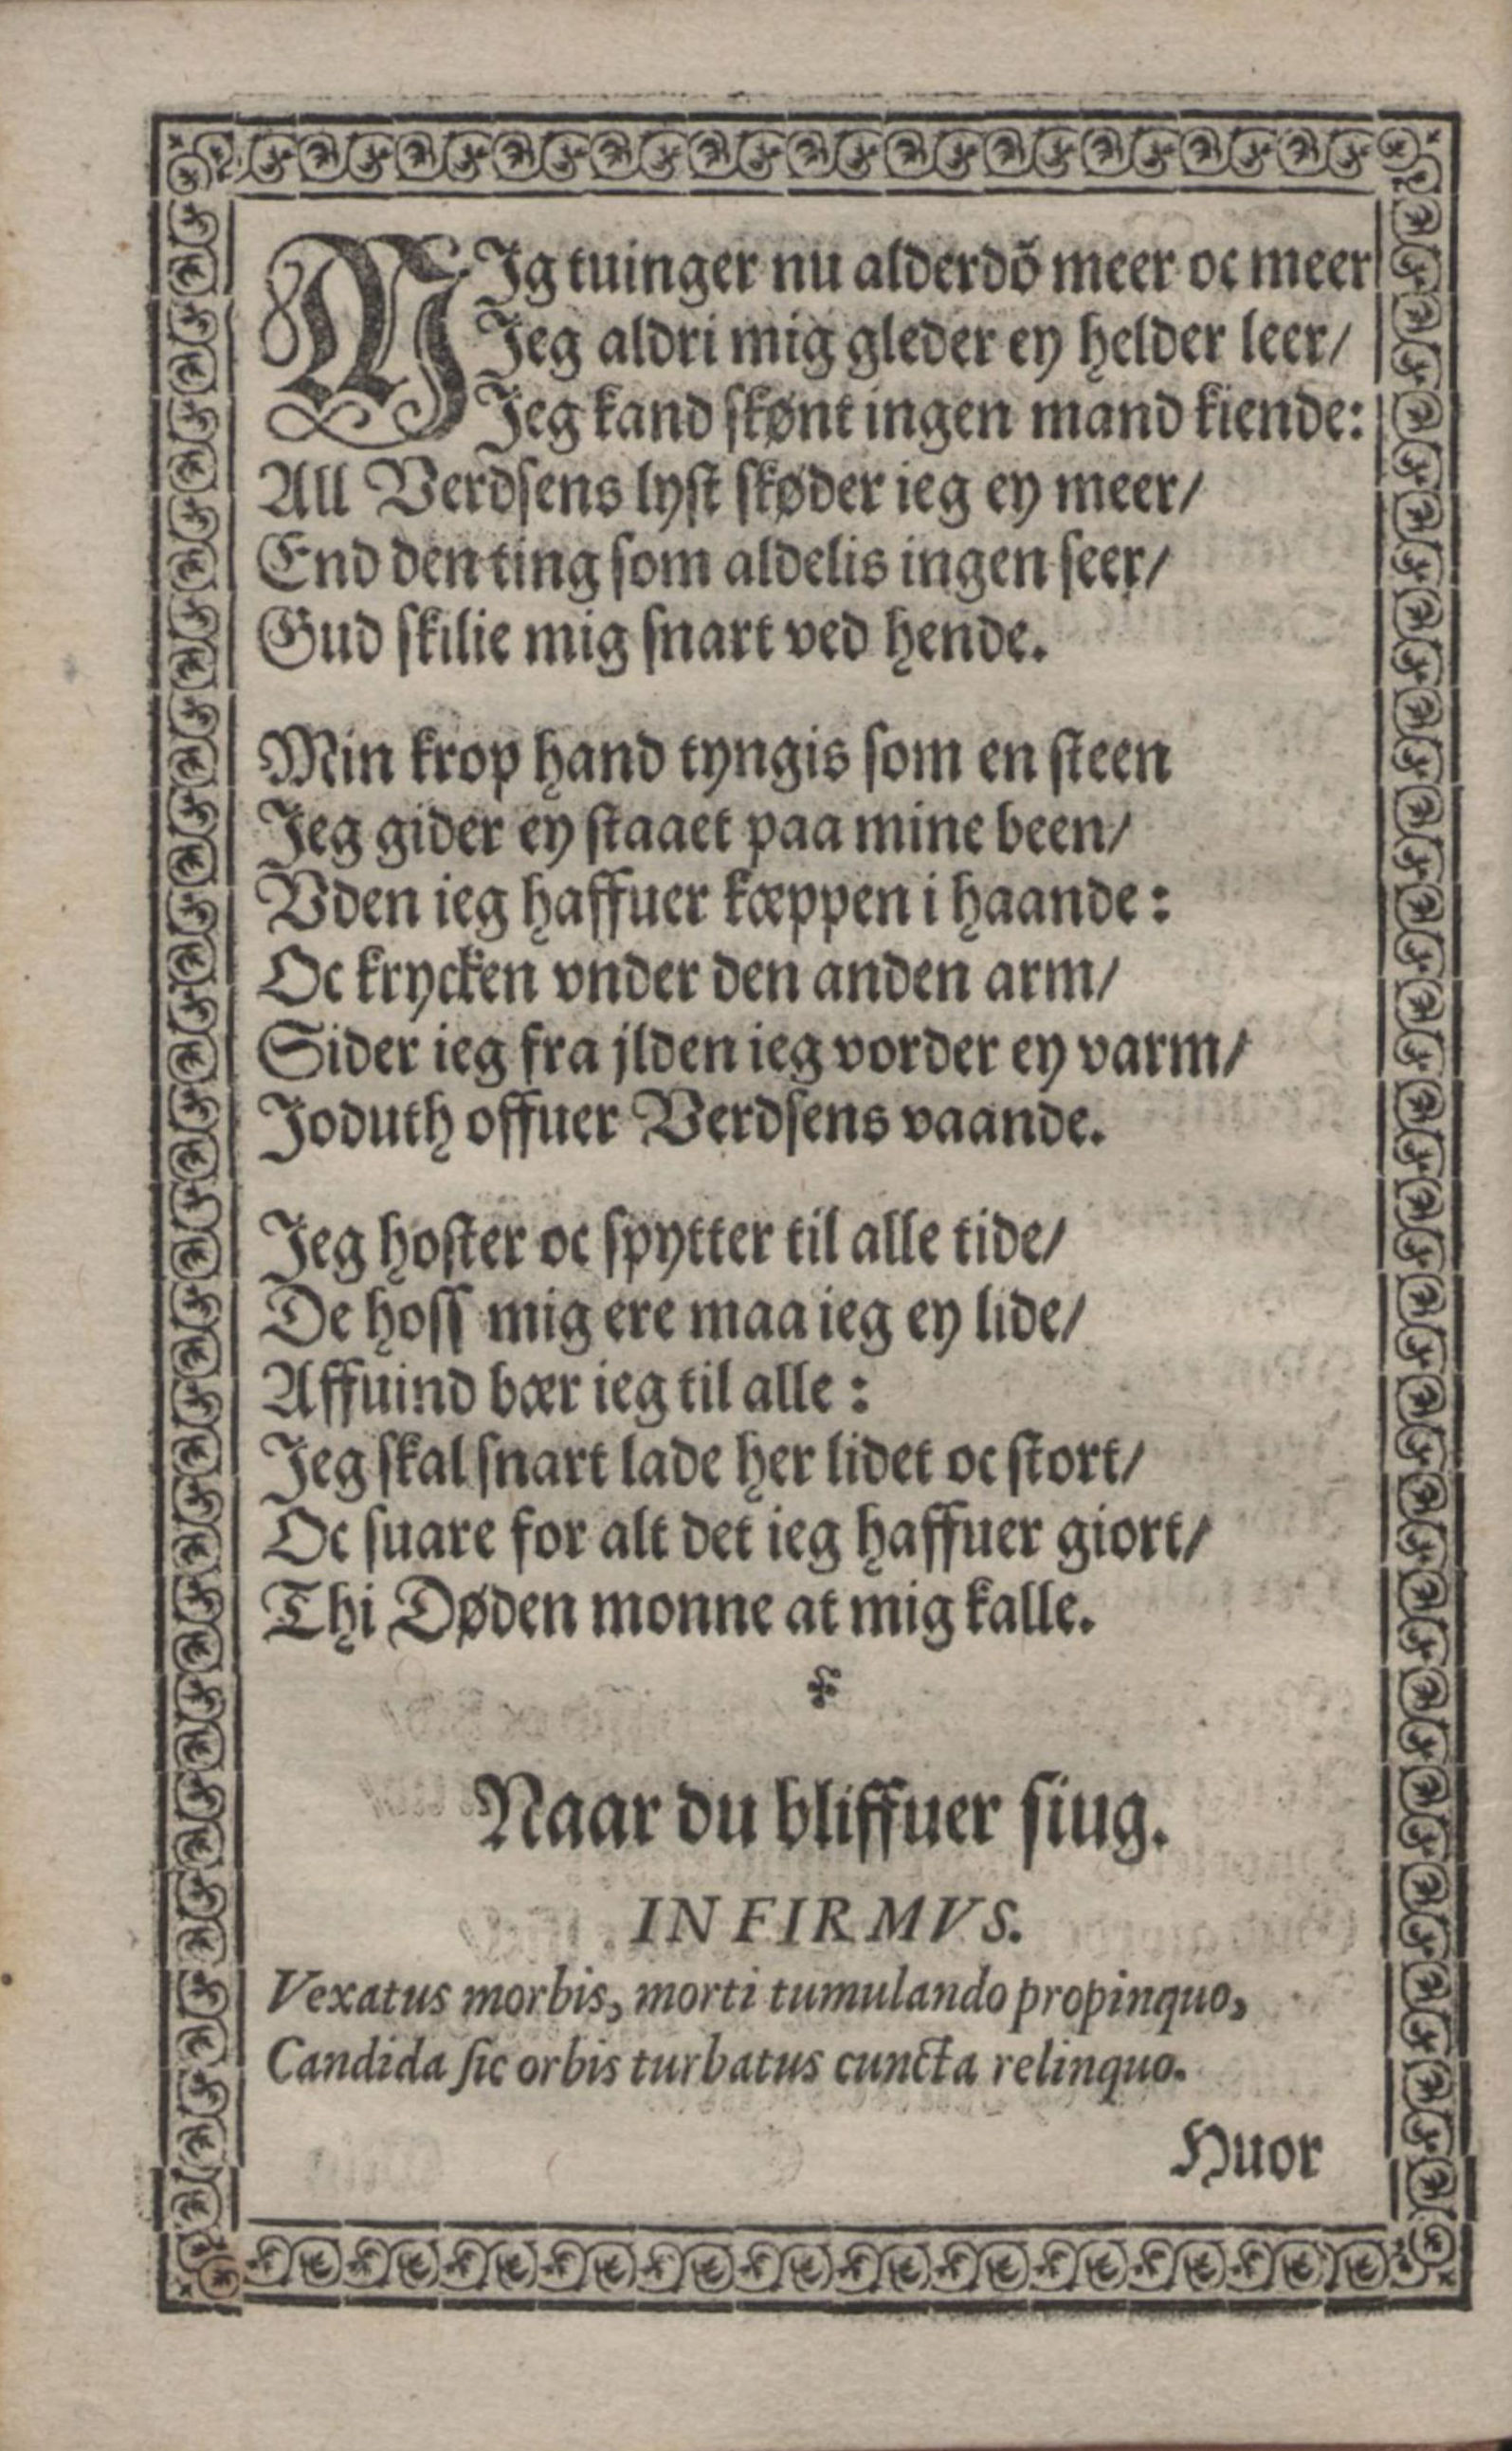 MIg tuinger nu alderdõ meer oc meer
Jeg aldri mig gleder ey helder leer/
Jeg kand skønt ingen mand kiende:
All Verdsens lyst skøder ieg ey meer/
End den ting som aldelis ingen seer/
Gud skilie mig snart ved hende.
Min krop hand tyngis som en steen
Jeg gider ey staaet paa mine been/
Vden ieg haffuer kæppen i haande:
Oc krycken vnder den anden arm/
Sider ieg fra jlden ieg vorder ey varm/
Joduth offuer Verdsens vaande.
Jeg hoster oc spytter til alle tide/
De hoss mig ere maa ieg ey lide/
Affuind bær ieg til alle:
Jeg skal snart lade her lidet oc stort/
Oc suare for alt det ieg haffuer giort/
Thi Døden monne at mig kalle.
Naar du bliffuer siug.
INFIRMVS.
Vexatus morbis, morti tumulando propinquo,
Candida sic orbis turbatus cuncta relinquo.
Huor